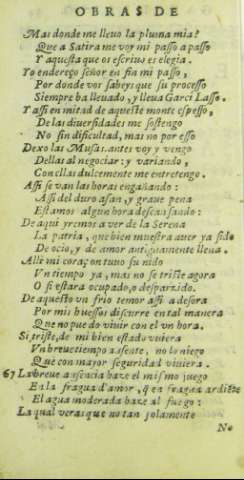 OBRAS DE
Mas donde me lleuo la pluma mia?
Que a Satira me voy mi passo a passo
Y aquesta que os escriuo es elegia.
Yo endereço señor en fin mi passo,
Por donde vos sabeys que su processo
Siempre ha lleuado, y lleua Garci Lasso.
Y assi en mitad de aqueste monte espesso,
De las diuersidades me sostengo
No sin dificultad, mas no por esso
Dexo las Musas, antes voy y vengo
Dellas al negociar: y variando,
Con ellas dulcemente me entretengo.
Assi se van las horas engañando:
Assi del duro afan, y graue pena
Estamos algun hora descansando:
De aqui yremos a ver de la Serena
La patria, que bien muestra auer ya sido
De ocio, y de amor antiguamente llena.
Alli mi coraçon tuuo su nido
Vn tiempo ya, mas no se triste agora
O si estara ocupado, o desparzido.
De aquesto vn frio temor assi a desora
Por mis huessos discurre en tal manera
Que no puedo viuir con el vn hora.
Si triste, de mi bien estado vuiera
Vn breue tiempo ausente, no lo niego
Que con mayor seguridad viuiera.
67 La breue ausencia haze el mismo juego
En la fragua d'amor, q̃ en fragua ardiẽte
El agua moderada haze al fuego:
La qual veras que no tan solamente
No